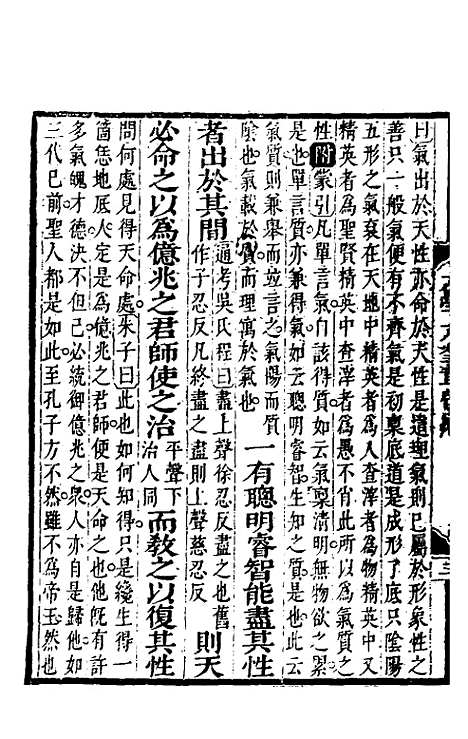 曰氣出於天性亦命於天性是道理氣則已屬於形象性之
善只一般氣便有不齊氣是初稟底道是成形了底只陰陽
五形之氣裒在天地中精英者為人渣滓者為物精英中又
精英者為聖賢精英中渣滓者為愚不肖此所以為氣質之
性附蒙引凡單言氣自該得質如云氣稟清明無物欲之累
是也單言質亦兼得氣如云聰明睿智生知之質是也此云
氣質則兼舉而竝言之氣陽而質
陰也氣載於質而理寓於氣也
一有聰明睿智能盡其性
者出於其間
通考吳氏程曰盡上聲徐忍反盡之也舊
作子忍反凡終盡之盡則上聲慈忍反
則天
必命之以為億兆之君師使之治
平聲下
治人同
而教之以復其性
問何處見得天命處朱子曰此也如何知得只是纔生得一
箇恁地底人定是為億兆之君師便是天命之也他既有許
多氣魄才德決不但已必統御億兆之衆人亦自是歸他如
三代已前聖人都是如此至孔子方不然雖不為帝王然也